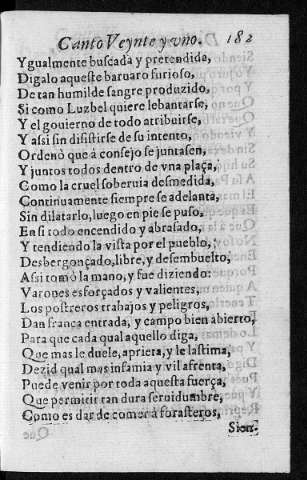 Canto Veynte y vno. 182
Ygualmente buscada y pretendida,
Digalo aqueste baruaro furioso,
De tan humilde sangre produzido,
Si como Luzbel quiere lebantarse,
Y el gouierno de todo atribuirse,
Y assi sin disistirse de su intento,
Ordenò que à consejo se juntasen,
Y juntos todos dentro de vna plaça,
Como la cruel soberuia desmedida,
Continuamente siempre se adelanta,
Sin dilatarlo, luego en pie se puso,
En si todo encendido y abrasado,
Y tendiendo la vista por el pueblo,
Desbergonçado, libre, y desembuelto,
Assi tomò la mano, y fue diziendo:
Varones esforçados y valientes,
Los postreros trabajos y peligros,
Dan franca entrada, y campo bien abierto,
Para que cada qual aquello diga,
Que mas le duele, apriera, y le lastima,
Dezid qual mas infamia y vil afrenta,
Puede venir por toda aquesta fuerça,
Que permitir tan dura seruidumbre,
Como es dar de comer à forasteros,
Sien-